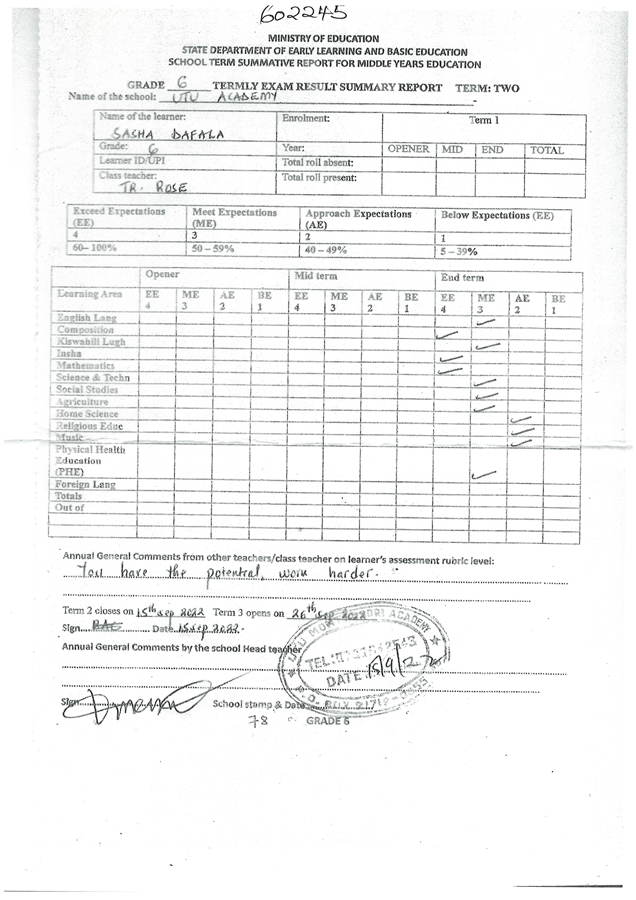 602245
MINISTRY OF EDUCATION
STATE DEPARTMENT OF EARLY LEARNING AND BASIC EDUCATION
SCHOOL TERM SUMMATIVE REPORT FOR MIDDLE YEARS EDUCATION
GRADE 6 TERMLY EXAM RESULT SUMMARY REPORT TERM: TWO
Name of the school: UTU ACADEMY
Name of the learner: Enrolment: Term 1
SASHA DAFALA
Grade: 6 Year: OPENER MID END TOTAL
Learner ID/UPI Total roll absent:
Class teacher: Total roll present:
TR. ROSE
Exceed Expectations Meet Expectations Approach Expectations Below Expectations (EE)
(EE) (ME) (AE)
4 3 2 1
60–100% 50–59% 40–49% 5–39%
Opener Mid term End term
Learning Area EE ME AE BE EE ME AE BE EE ME AE BE
4 3 2 1 4 3 2 1 4 3 2 1
English Lang
Composition
Kiswahili Lugh
Insha
Mathematics
Science & Techn
Social Studies
Agriculture
Home Science
Religious Educ
Music
Physical Health
Education
(PHE)
Foreign Lang
Totals
Out of
Annual General Comments from other teachers/class teacher on learner's assessment rubric level:
You have the potential, work harder.
Term 2 closes on 15th sep 2022 Term 3 opens on 26th sep 2022
Sign Date 15 sep 2022
Annual General Comments by the school Head teacher
ACADEMY
TEL:
DATE: 15/9/22
P.O. BOX
Sign School stamp & Date
78 GRADE 6